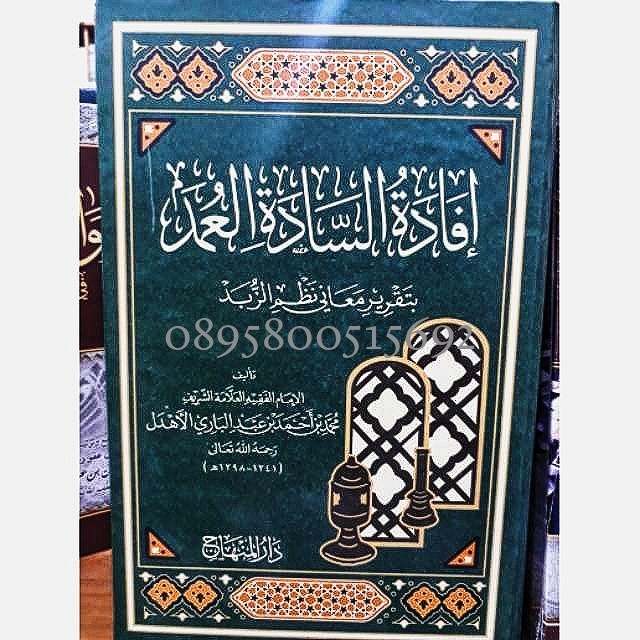 إفَادَةُ السَّادَةِ العُمَد
بتَقْرِيْرِ مَعَانِي نَظْمِ الزُّبَد
0895800515692
تأليف
الإمَام الفَقِيْهِ العَلَّامَة الشَّرِيْف
مُحمَّد بْن أحْمَد بْن عَبْد البَارِي الأَهْدَل
رَحِمَهُ اللهُ تَعَالَى
(١٢٤١-١٢٩٨هـ)
دَارُ المِنْهَاجِ